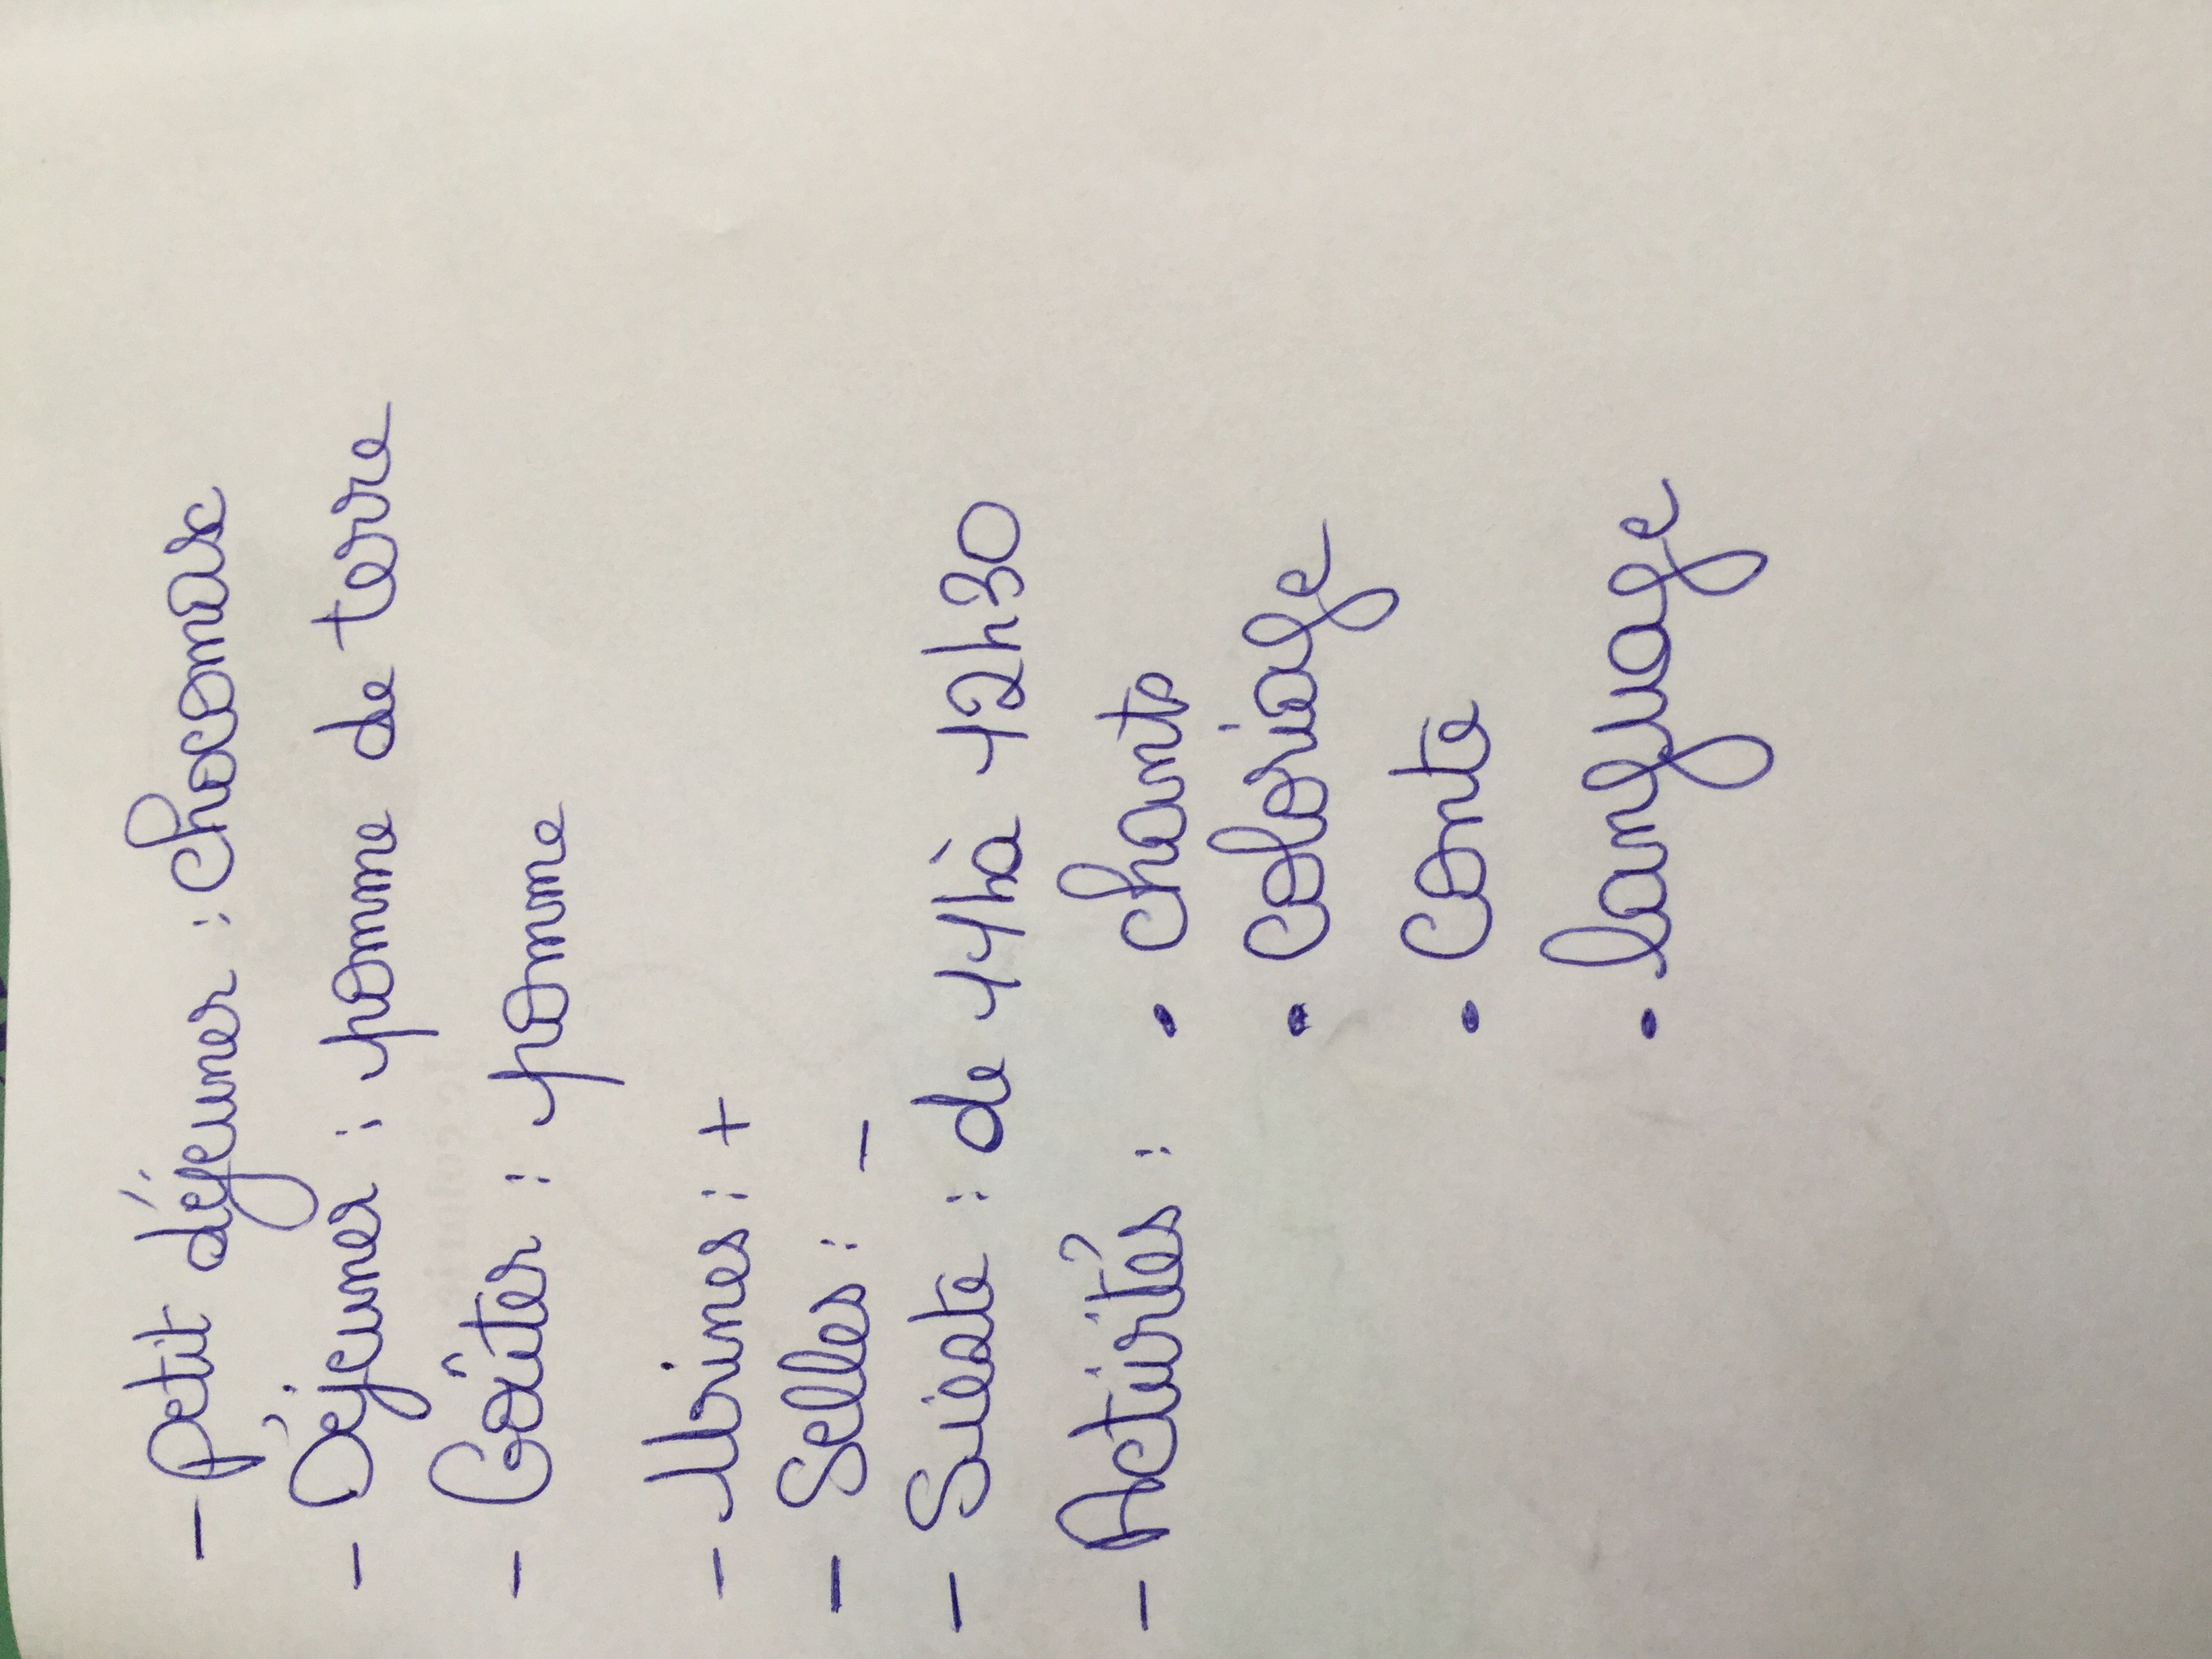 - petit déjeuner : chocomax
- Déjeuner : pomme de terre
- Goûter : pomme
- Urines : +
- Selles : -
- Sieste : de 11h à 12h30
- Activités : • chants
• coloriage
• conte
• language